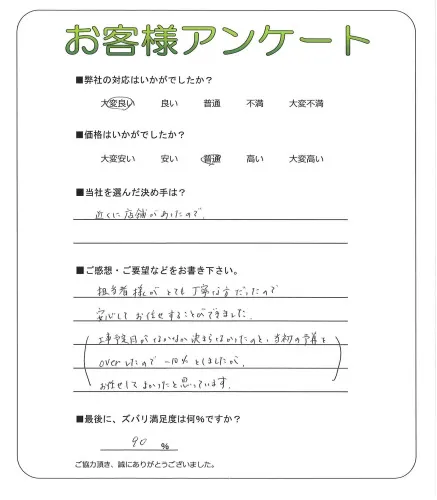 お客様アンケート
■弊社の対応はいかがでしたか？
大変良い 良い 普通 不満 大変不満
■価格はいかがでしたか？
大変安い 安い 普通 高い 大変高い
■当社を選んだ決め手は？
近くに店舗があったので。
■ご感想・ご要望などをお書き下さい。
担当者様がとても丁寧な方だったので
安心してお任せすることができました。
工事予定日がなかなか決まらなかったのと、当初の予算を
overしたので 90%としましたが、
お任せしてよかったと思っています。
■最後に、ズバリ満足度は何%ですか？
90 %
ご協力頂き、誠にありがとうございました。